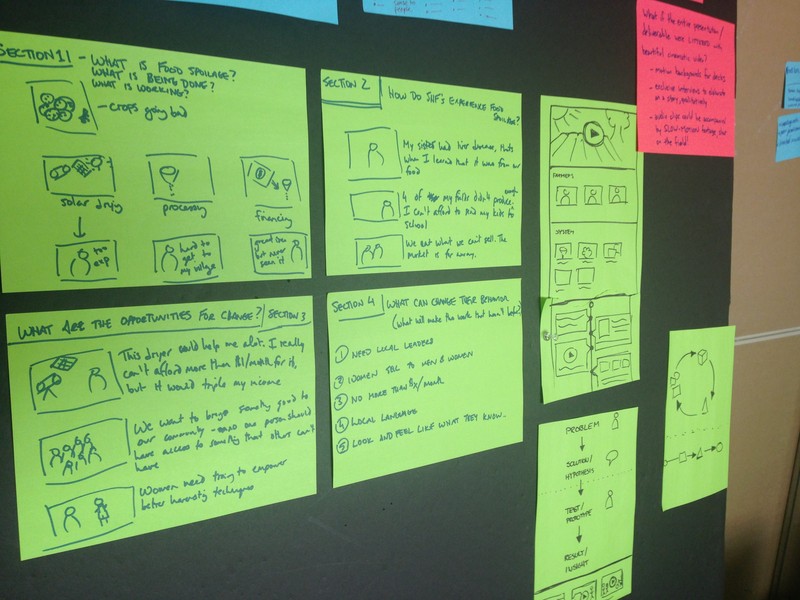 SECTION 1 - WHAT IS FOOD SPOILAGE?
WHAT IS BEING DONE?
WHAT IS WORKING?
- crops going bad
solar drying
processing
financing
too
exp
hard to
get to
my village
great idea
but never
seen it
SECTION 2
HOW DO SHF'S EXPERIENCE FOOD
SPOILAGE?
My sister had liver damage, thats
when I learned that it was from our
food
4 of my fields didn't produce enough.
I can't afford to send my kids to
school
We eat what we can't sell. The
market is far away.
WHAT ARE THE OPPORTUNITIES FOR CHANGE? SECTION 3
This dryer could help me alot. I really
can't afford more than $1/month for it,
but it would triple my income
We want to bring something good to
our community - no one person should
have access to something that other can't
have
Women need training to empower
better harvesting techniques
SECTION 4
WHAT CAN CHANGE THEIR BEHAVIOR
(what will make this work that hasn't before)
1 NEED LOCAL LEADERS
2 WOMEN SELL TO MEN & WOMEN
3 NO MORE THAN $x/month
4 LOCAL LANGUAGE
5 LOOK AND FEEL LIKE WHAT THEY KNOW.
FARMERS
SYSTEM
PROBLEM
SOLUTION/
HYPOTHESIS
TEST/
PROTOTYPE
RESULT/
INSIGHT
What if the entire presentation/
deliverable were LITTERED with
beautiful cinematic video?
- motion backgrounds for decks
- exclusive interviews to elaborate
on a story, qualitatively
- audio clips could be accompanied
by SLOW-MOTION footage, clear
on the field!
people